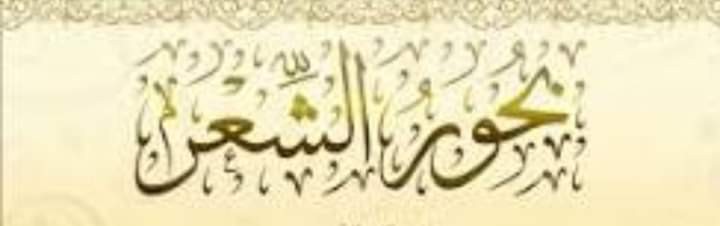 بُحُورُ الشِّعْرِ